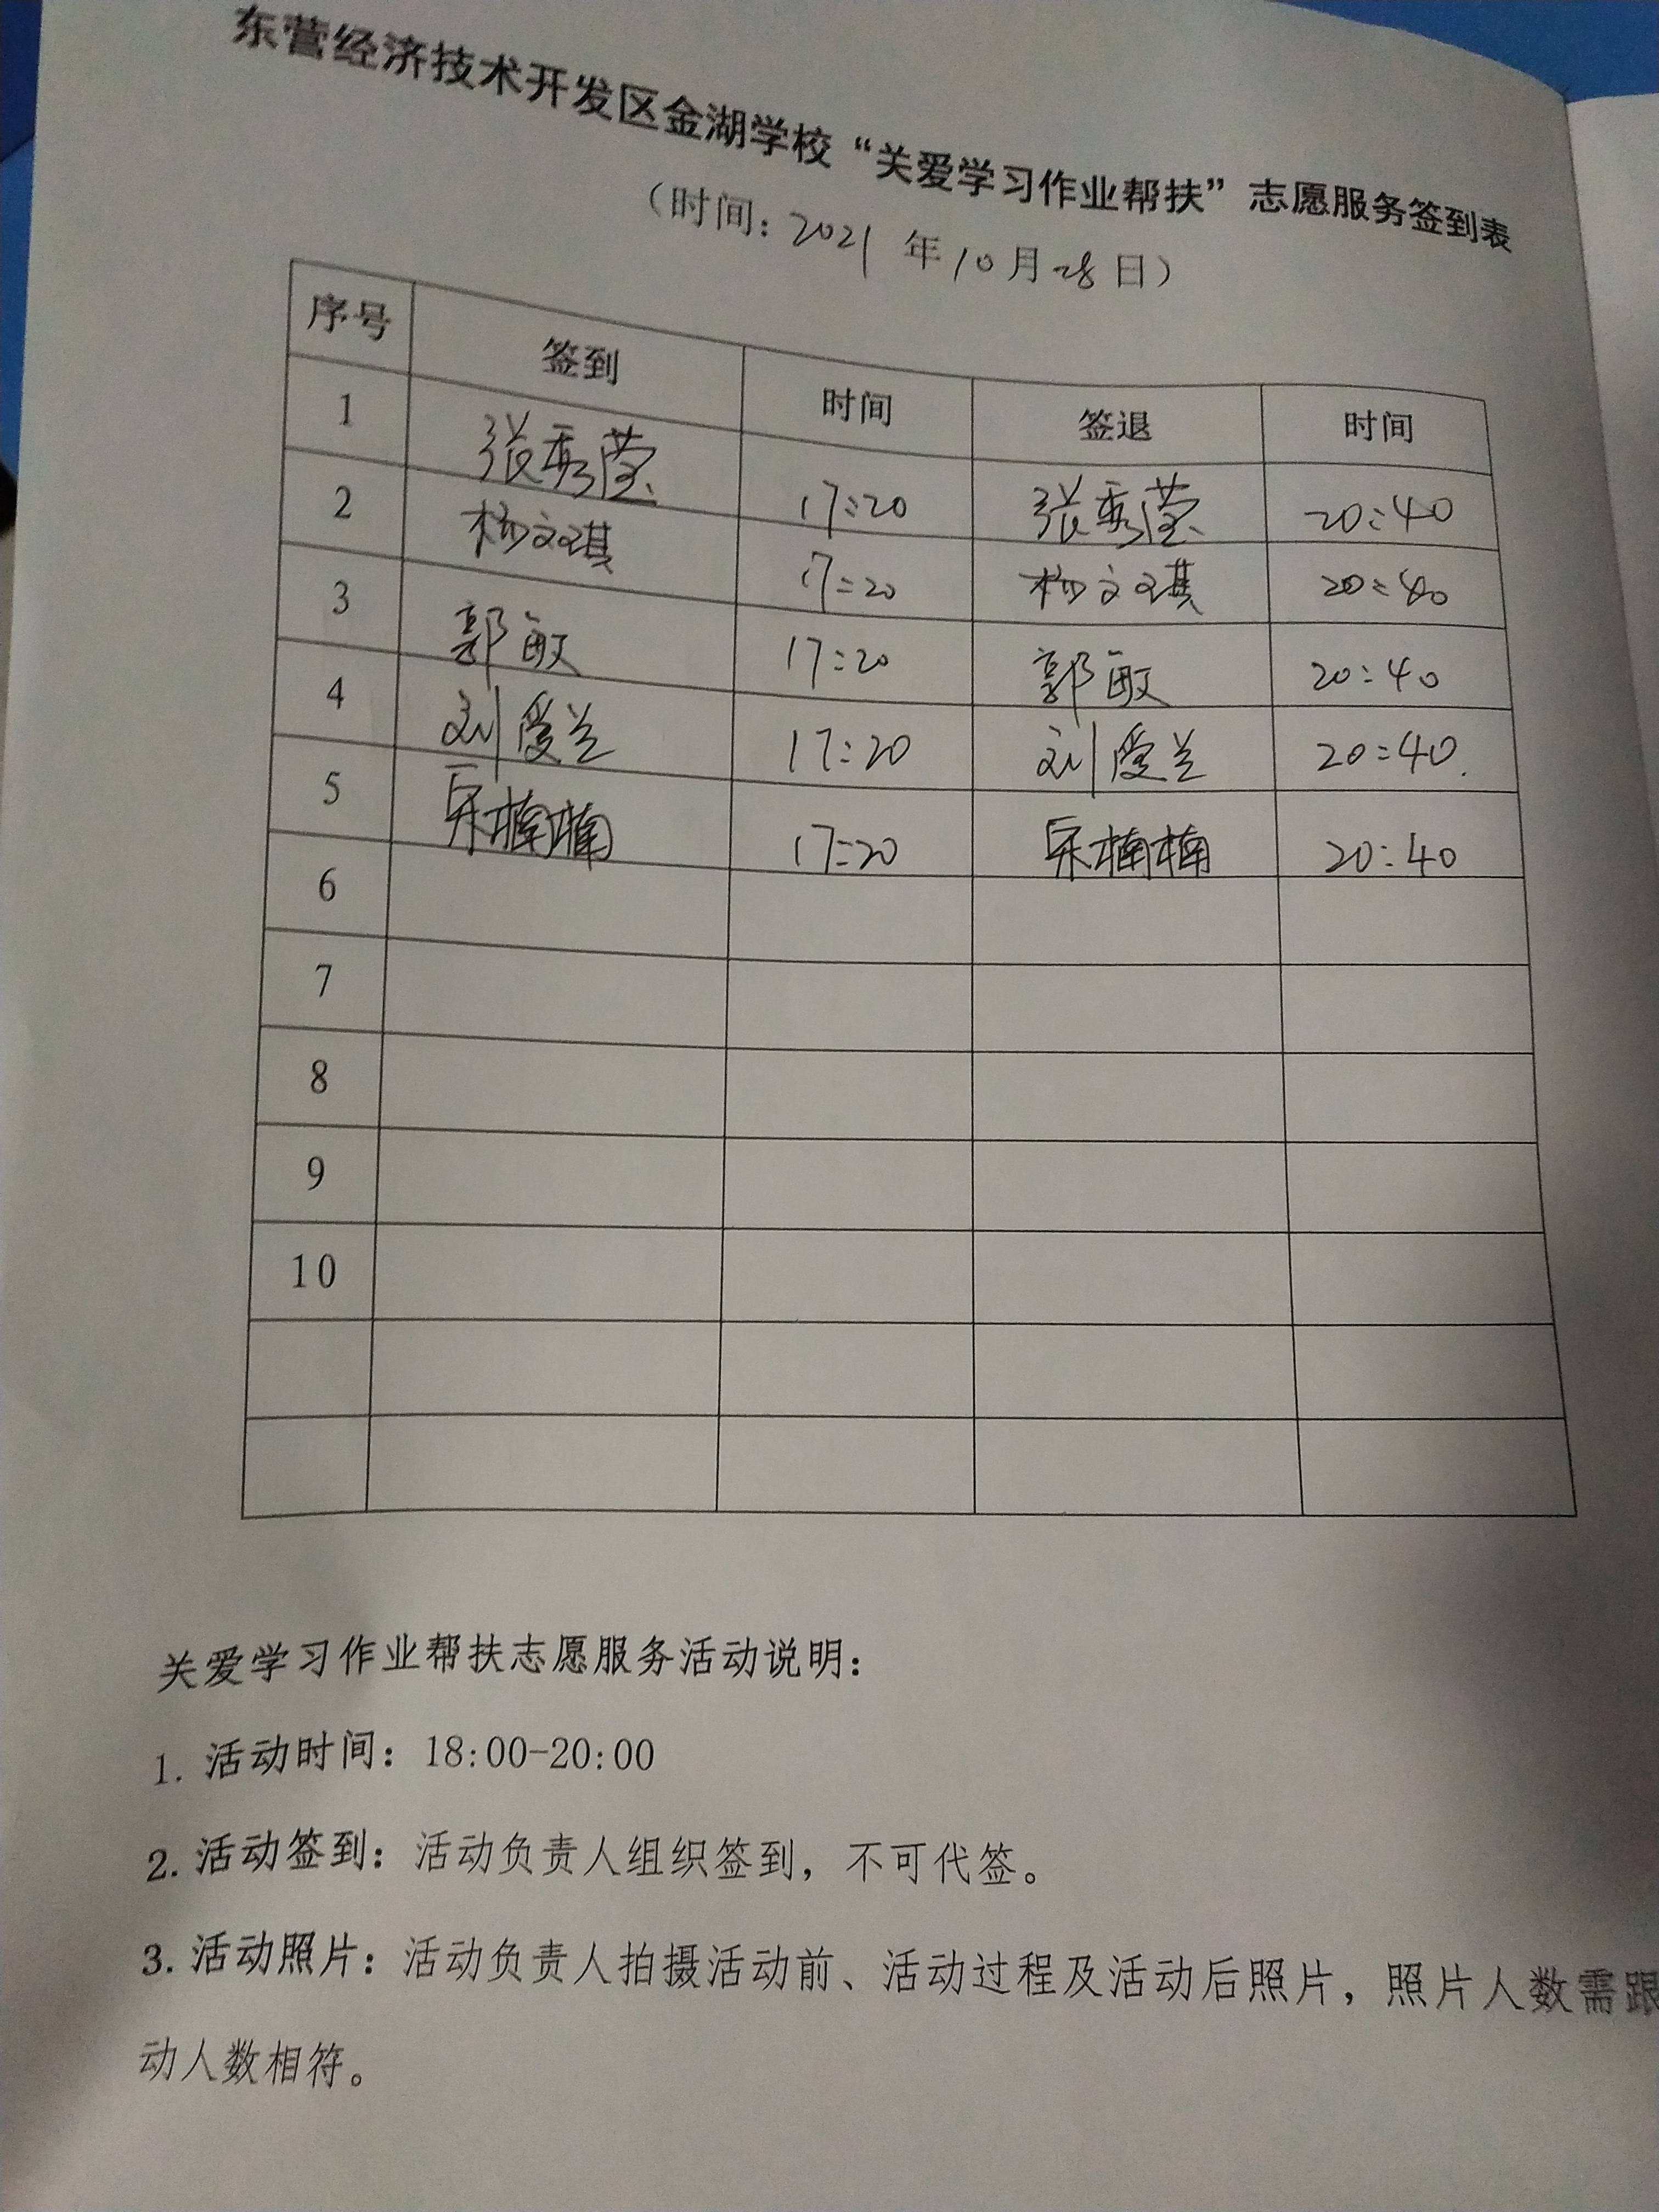 东营经济技术开发区金湖学校“关爱学习作业帮扶”志愿服务签到表
（时间：2021年10月28日）
序号 签到 时间 签退 时间
1 张秀莹 17:20 张秀莹 20:40
2 杨文琪 17:20 杨文琪 20:40
3 郭敏 17:20 郭敏 20:40
4 刘爱兰 17:20 刘爱兰 20:40
5 楠楠 17:20 楠楠 20:40
6
7
8
9
10
关爱学习作业帮扶志愿服务活动说明：
1. 活动时间：18:00-20:00
2. 活动签到：活动负责人组织签到，不可代签。
3. 活动照片：活动负责人拍摄活动前、活动过程及活动后照片，照片人数需跟
动人数相符。